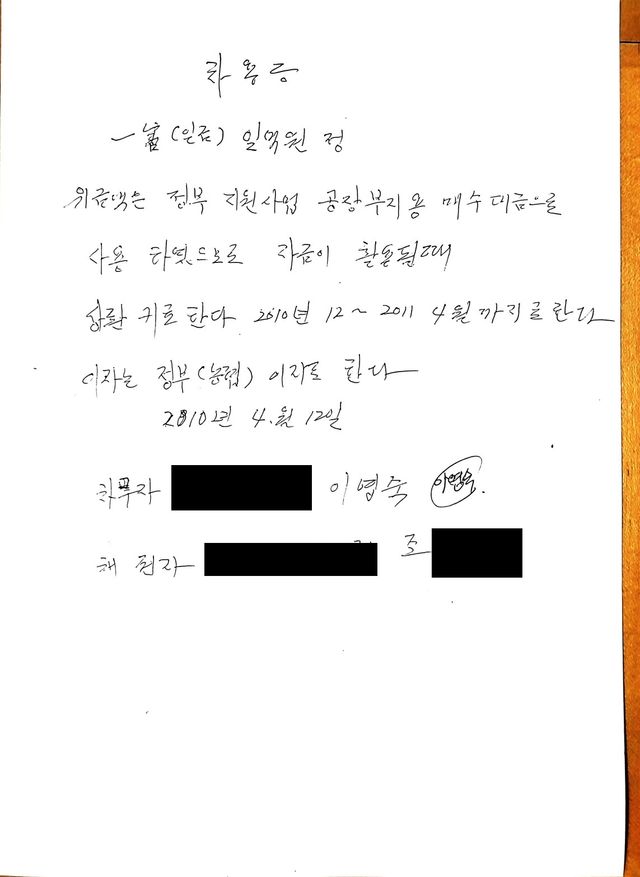 차용증
一金(일금) 일억원 정
위금액은 정부 지원사업 공장부지용 매수대금으로
사용 하였으므로 자금이 활용될때
상환 키로 한다 2010년 12 ~ 2011 4월까지로 한다
이자는 정부(농협) 이자로 한다
2010년 4.월 12일
차무자 이영숙 이영숙
채권자 조